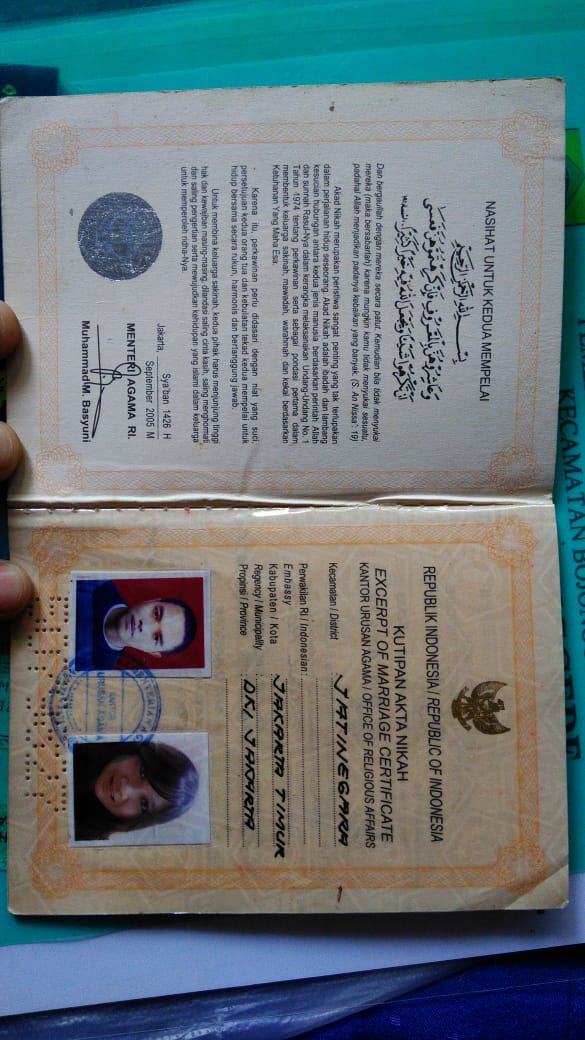 NASIHAT UNTUK KEDUA MEMPELAI
بِسْمِ اللهِ الرَّحْمٰنِ الرَّحِيْمِ
وَعَاشِرُوْهُنَّ بِالْمَعْرُوْفِ فَإِنْ كَرِهْتُمُوْهُنَّ فَعَسٰى
أَنْ تَكْرَهُوْا شَيْئًا وَيَجْعَلَ اللهُ فِيْهِ خَيْرًا كَثِيْرًا
Dan bergaullah dengan mereka secara patut. Kemudian bila tidak menyukai
mereka (maka bersabarlah) karena mungkin kamu tidak menyukai sesuatu,
padahal Allah menjadikan padanya kebaikan yang banyak. (S. An Nissa': 19)
Akad Nikah merupakan peristiwa sangat penting yang tak terlupakan
dalam perjalanan hidup seseorang. Akad Nikah adalah ibadah dan lambang
kesucian hubungan antara kedua jenis manusia berdasarkan perintah Allah
dan sunnah Rasul-Nya dalam kerangka melaksanakan Undang-Undang No. 1
Tahun 1974 tentang perkawinan serta sebagai pondasi pertama dalam
membentuk keluarga sakinah, mawadah, warahmah dan kekal berdasarkan
Ketuhanan Yang Maha Esa.
Karena itu, perkawinan perlu didasari dengan niat yang suci,
persetujuan kedua orang tua dan kebulatan tekad kedua mempelai untuk
hidup bersama secara rukun, harmonis dan bertanggung jawab.
Untuk membina keluarga sakinah, kedua pihak harus menjunjung tinggi
hak dan kewajiban masing-masing, dilandasi saling cinta kasih, saling menghormati
dan saling pengertian serta mewujudkan kehidupan yang islami dalam keluarga
untuk memperoleh ridha-Nya.
Jakarta, Sya'ban 1426 H
September 2005 M
MENTERI AGAMA RI.
Muhammad M. Basyuni
REPUBLIK INDONESIA / REPUBLIC OF INDONESIA
KUTIPAN AKTA NIKAH
EXCERPT OF MARRIAGE CERTIFICATE
KANTOR URUSAN AGAMA / OFFICE OF RELIGIOUS AFFAIRS
Kecamatan / District : JATINEGARA
Perwakilan RI / Indonesian :
Embassy
Kabupaten / Kota : JAKARTA TIMUR
Regency / Municipality
Propinsi / Province : DKI JAKARTA
KECAMATAN